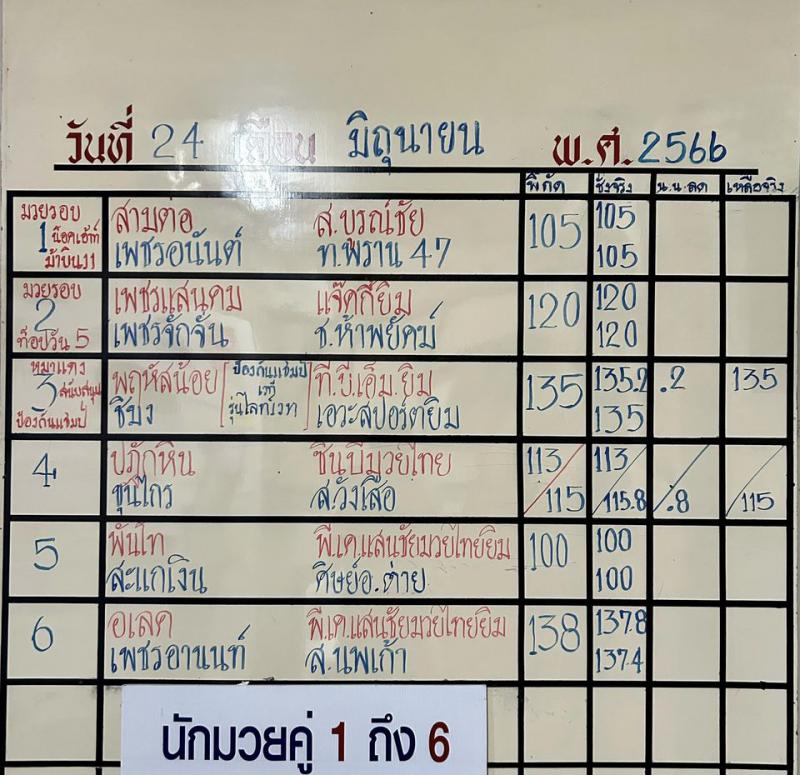 วันที่ 24 เดือน มิถุนายน พ.ศ. 2566
พิกัด ชั่งจริง น.น.ลด เหลือจริง
มวยรอบ สามตอ ส.บูรณ์ชัย 105 105
1 น็อคเอ้าท์ เพชรอนันต์ ท.พราน 47 105
ม้าบิน11
มวยรอบ เพชรแสนคม แจ๊คกี่ยิม 120 120
2 เพชรจักจั่น ช.ห้าพยัคฆ์ 120
ท็อปวัน 5
หมาแดง พฤหัสน้อย ป้องกันแชมป์ ที.บี.เอ็ม.ยิม 135 135.2 .2 135
3 สนับสนุน ชิบง เวที เอวะสปอร์ตยิม 135
ป้องกันแชมป์ รุ่นไลท์เวท
4 ปฏักหิน ซินบีมวยไทย 113 113
ขุนไกร ส.วังเสือ 115 115.8 .8 115
5 พันไท พี.เค.แสนชัยมวยไทยยิม 100 100
สะแกเงิน ศิษย์อ.ต่าย 100
6 อเลค พี.เค.แสนชัยมวยไทยยิม 138 137.8
เพชรอานนท์ ส.นพเก้า 137.4
นักมวยคู่ 1 ถึง 6